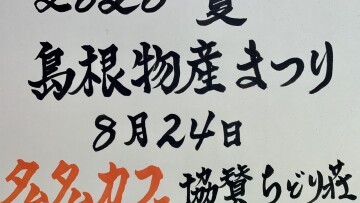 夏
島根物産まつり
8月24日
タムタムカフェ 協賛 ちどり荘